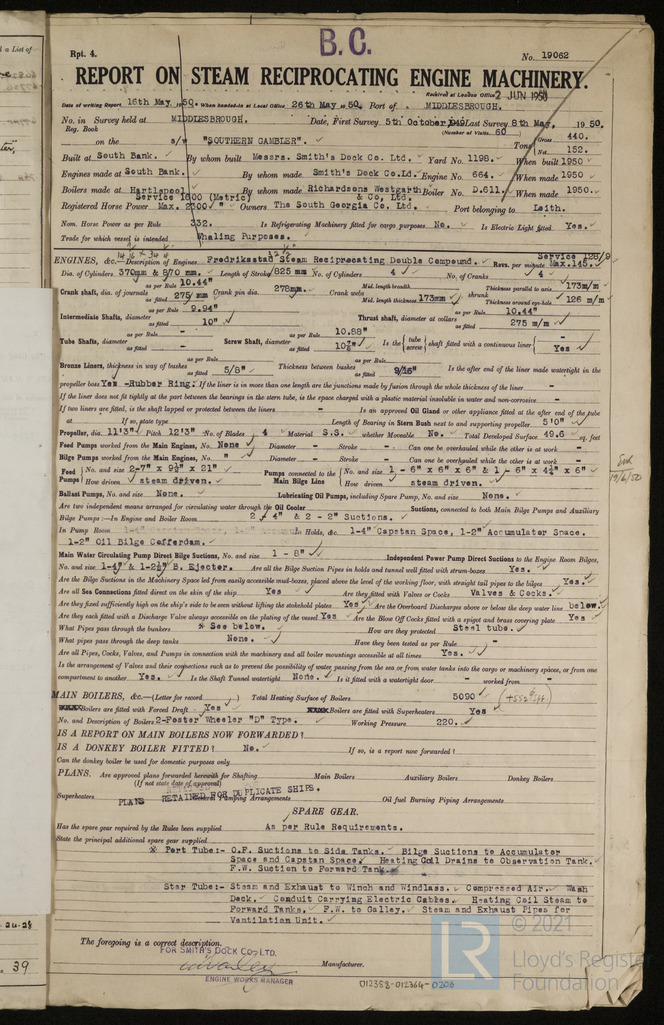 B.C.
Rpt. 4.
No. 19062
REPORT ON STEAM RECIPROCATING ENGINE MACHINERY.
Received at London Office 2 JUN 1950
Date of writing Report 16th May 1950. When handed in at Local Office 26th May 1950. Port of MIDDLESBROUGH.
No. in Survey held at MIDDLESBROUGH. Date, First Survey 5th October 1949 Last Survey 8th May, 1950.
Reg. Book (Number of Visits 60
on the s/v "SOUTHERN GAMBLER". Tons Gross 440. Net 152.
Built at South Bank. By whom built Messrs. Smith's Dock Co. Ltd. Yard No. 1198. When built 1950
Engines made at South Bank. By whom made Smith's Dock Co.Ltd. Engine No. 664. When made 1950
Boilers made at Hartlepool By whom made Richardsons Westgarth & Co, Ltd. Boiler No. D.611. When made 1950.
Registered Horse Power Service 1600 (Metric) Max. 2300 " Owners The South Georgia Co. Ltd. Port belonging to Leith.
Nom. Horse Power as per Rule 332. Is Refrigerating Machinery fitted for cargo purposes No. Is Electric Light fitted Yes.
Trade for which vessel is intended Whaling Purposes.
ENGINES, &c.—Description of Engines Fredrikstad Steam Reciprocating Double Compound. Revs. per minute Service 128/9 Max.145.
Dia. of Cylinders 370mm & 870 mm. Length of Stroke 825 mm No. of Cylinders 4 No. of Cranks 4
Crank shaft, dia. of journals as per Rule 10.44" as fitted 275 mm Crank pin dia. 278mm. Crank webs Mid. length breadth Mid. length thickness 173mm shrunk Thickness parallel to axis 173m/m Thickness around eye-hole 126 m/m
Intermediate Shafts, diameter as per Rule 9.94" as fitted 10" Thrust shaft, diameter at collars as per Rule 10.44" as fitted 275 m/m
Tube Shafts, diameter as per Rule - as fitted - Screw Shaft, diameter as per Rule 10.88" as fitted Is the tube screw shaft fitted with a continuous liner - Yes
Bronze Liners, thickness in way of bushes as per Rule as fitted 5/8" Thickness between bushes as per Rule as fitted 9/16" Is the after end of the liner made watertight in the
propeller boss Yes -Rubber Ring. If the liner is in more than one length are the junctions made by fusion through the whole thickness of the liner -
If the liner does not fit tightly at the part between the bearings in the stern tube, is the space charged with a plastic material insoluble in water and non-corrosive -
If two liners are fitted, is the shaft lapped or protected between the liners - Is an approved Oil Gland or other appliance fitted at the after end of the tube
at If so, state type Length of Bearing in Stern Bush next to and supporting propeller 5'0"
Propeller, dia. 11'3" Pitch 12'3" No. of Blades 4 Material S.S. whether Moveable No. Total Developed Surface 49.5 sq. feet
Feed Pumps worked from the Main Engines, No. None Diameter - Stroke - Can one be overhauled while the other is at work -
Bilge Pumps worked from the Main Engines, No. " Diameter - Stroke - Can one be overhauled while the other is at work -
Feed Pumps No. and size 2-7" x 9½" x 21" How driven steam driven. Pumps connected to the Main Bilge Line No. and size 1 - 6" x 6" x 6" & 1 - 6" x 4¼" x 6" How driven steam driven.
Ballast Pumps, No. and size None. Lubricating Oil Pumps, including Spare Pump, No. and size None.
Are two independent means arranged for circulating water through the Oil Cooler Suctions, connected to both Main Bilge Pumps and Auxiliary
Bilge Pumps:—In Engine and Boiler Room 2 - 4" & 2 - 2" Suctions.
In Pump Room In Holds, &c. 1-4" Capstan Space, 1-2" Accumulator Space.
1-2" Oil Bilge Cofferdam.
Main Water Circulating Pump Direct Bilge Suctions, No. and size 1 - 8" Independent Power Pump Direct Suctions to the Engine Room Bilges,
No. and size 1-4" & 1-2½" B. Ejector. Are all the Bilge Suction Pipes in holds and tunnel well fitted with strum-boxes Yes.
Are the Bilge Suctions in the Machinery Space led from easily accessible mud-boxes, placed above the level of the working floor, with straight tail pipes to the bilges Yes.
Are all Sea Connections fitted direct on the skin of the ship Yes Are they fitted with Valves or Cocks Valves & Cocks.
Are they fixed sufficiently high on the ship's side to be seen without lifting the stokehold plates Yes Are the Overboard Discharges above or below the deep water line below.
Are they each fitted with a Discharge Valve always accessible on the plating of the vessel Yes Are the Blow Off Cocks fitted with a spigot and brass covering plate Yes
What Pipes pass through the bunkers * See below. How are they protected Steel tube.
What pipes pass through the deep tanks None. Have they been tested as per Rule -
Are all Pipes, Cocks, Valves, and Pumps in connection with the machinery and all boiler mountings accessible at all times Yes.
Is the arrangement of Valves and their connections such as to prevent the possibility of water passing from the sea or from water tanks into the cargo or machinery spaces, or from one
compartment to another Yes. Is the Shaft Tunnel watertight None. Is it fitted with a watertight door - worked from -
MAIN BOILERS, &c.—(Letter for record ) Total Heating Surface of Boilers 5090
Boilers are fitted with Forced Draft Yes Boilers are fitted with Superheaters Yes
No. and Description of Boilers 2-Foster Wheeler "D" Type. Working Pressure 220.
IS A REPORT ON MAIN BOILERS NOW FORWARDED?
IS A DONKEY BOILER FITTED? No. If so, is a report now forwarded?
Can the donkey boiler be used for domestic purposes only
PLANS. Are approved plans forwarded herewith for Shafting Main Boilers Auxiliary Boilers Donkey Boilers
(If not state date of approval)
Superheaters General Pumping Arrangements Oil fuel Burning Piping Arrangements
PLANS RETAINED FOR DUPLICATE SHIPS.
SPARE GEAR.
Has the spare gear required by the Rules been supplied As per Rule Requirements.
State the principal additional spare gear supplied
* Port Tube:- O.F. Suctions to Side Tanks. Bilge Suctions to Accumulator
Space and Capstan Space. Heating Coil Drains to Observation Tank.
F.W. Suction to Forward Tank.
Star Tube:- Steam and Exhaust to Winch and Windlass. Compressed Air. Wash
Deck. Conduit Carrying Electric Cables. Heating Coil Steam to
Forward Tanks. F.W. to Galley. Steam and Exhaust Pipes for
Ventilation Unit.
The foregoing is a correct description.
FOR SMITH'S DOCK CO., LTD.
Manufacturer.
ENGINE WORKS MANAGER
012358-012364-0206
39
LR
© 2021
Lloyd's Register
Foundation